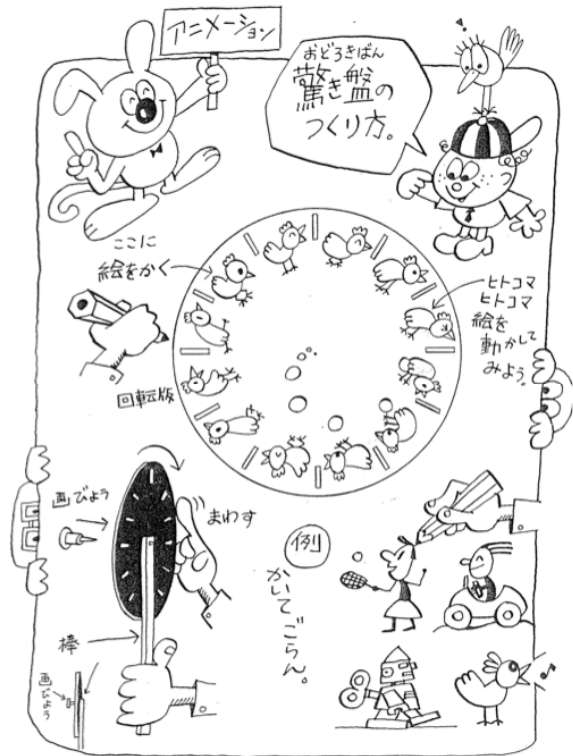 アニメーション
おどろきばん
驚き盤の
つくり方。
ここに
絵をかく
ヒトコマ
ヒトコマ
絵を
動かして
みよう。
回転版
画びょう
まわす
例
かいてごらん。
棒
画びょう